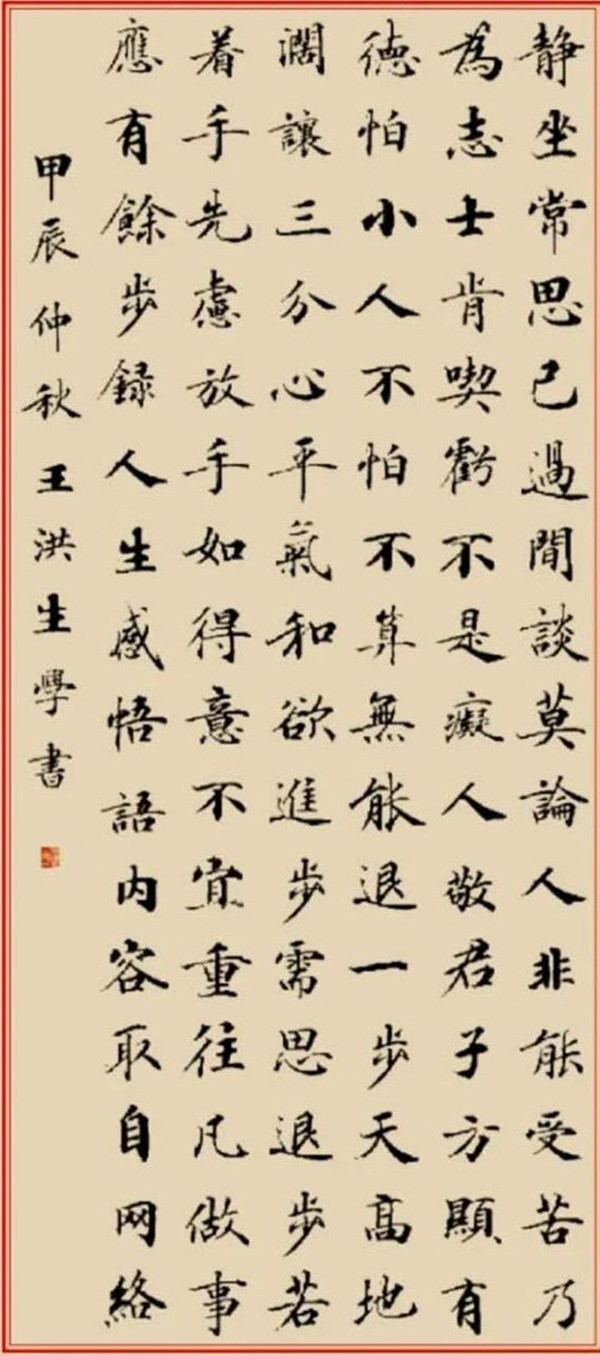 静坐常思己過閒談莫論人非能受苦乃
為志士肯喫虧不是癡人敬君子方顯有
德怕小人不怕不算無能退一步天高地
濶讓三分心平氣和欲進步需思退步若
着手先慮放手如得意不宜重往凡做事
應有餘步録人生感悟語内容取自网絡
甲辰仲秋王洪生學書